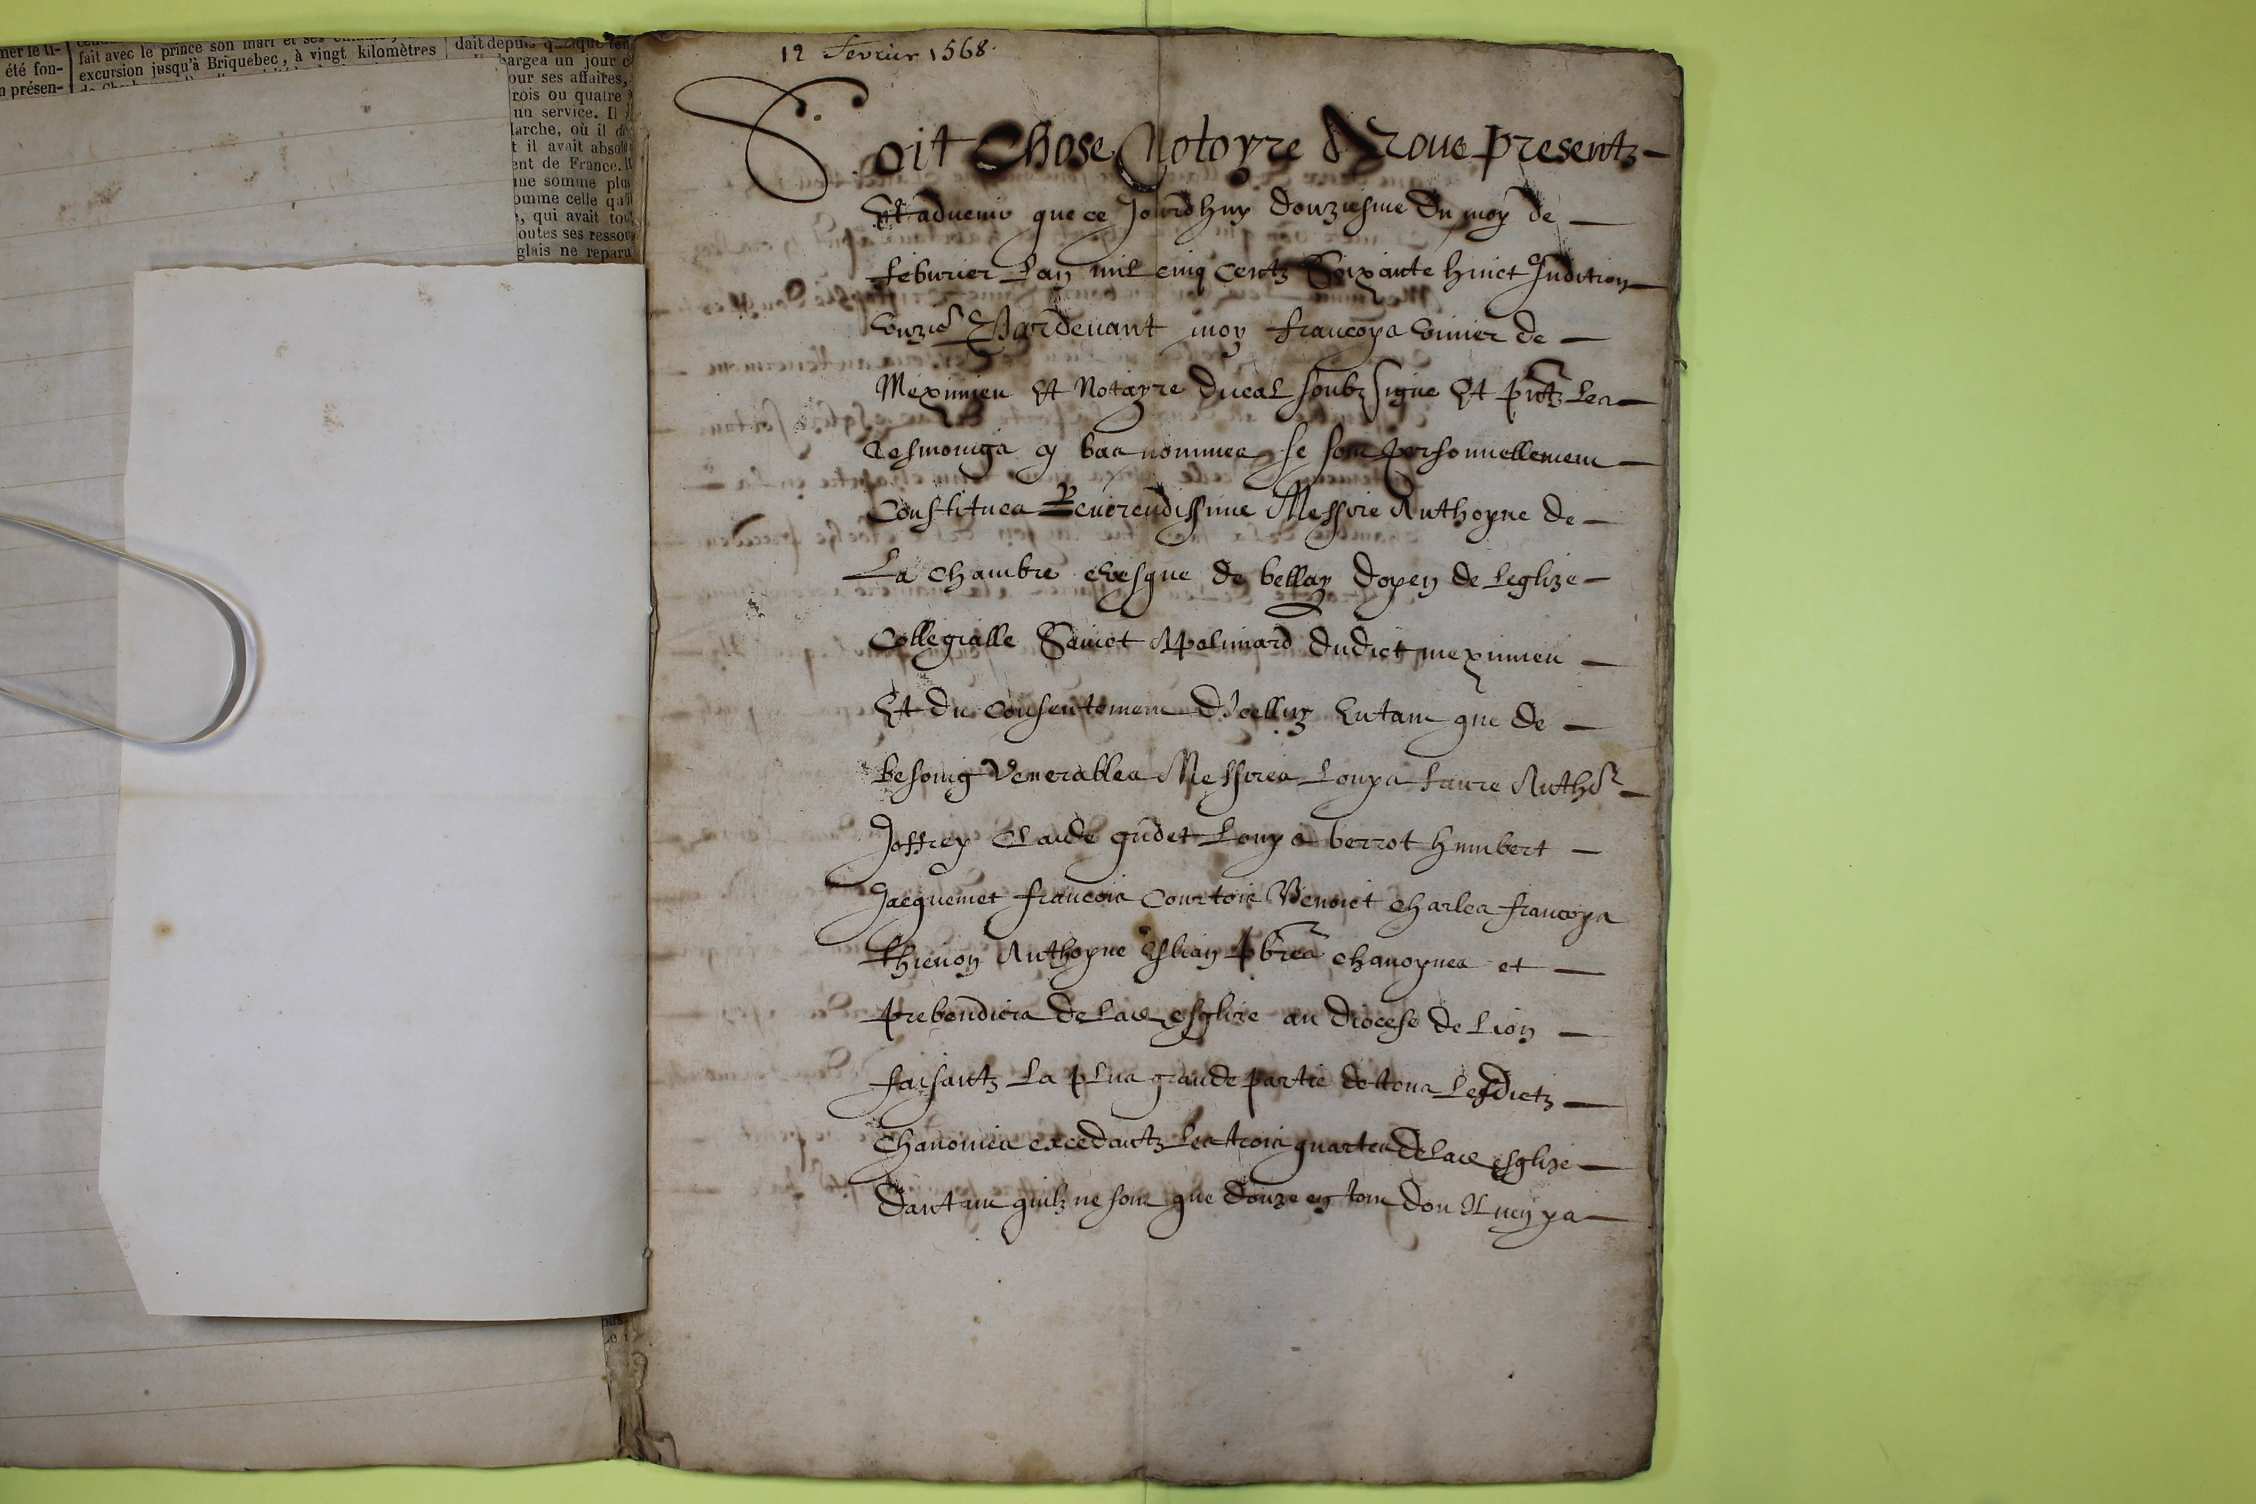 ner le ti-
été fon-
n présen-
fait avec le prince son mari et ses
excursion jusqu'à Briquebec, à vingt kilomètres
dait depuis quelque
bargea un jour
our ses affaires,
rois ou quatre
un service. Il
larche, où il
t il avait
ent de France.
ine somme plus
omme celle qu'il
, qui avait
outes ses
glais ne
12 Fevrier 1568.
Soit Chose Notoyre A Tous presentz
Et advenir que ce Jourdhuy douziesme du moys de
febvrier Lan mil cinq centz Soixante huict Indition
unzie Pardevant moy francoys vivier de
Meximieu Et Notayre ducal soubzsigne Et pntz Les
Tesmoings cy bas nommes se sont personnellement
Constitues Reverendissime Messire Anthoyne de
La Chambre evesque de bellay doyen de Leglize
Collegialle Sainct Apolinard dudict meximieu
Et du consentement dicelluy Entant que de
besoing Venerables Messires Loys favre Anthe
Joffrey Claude gudet Loys berrot humbert
Jacquemet francois Courtois Benoict Charles francoys
Thievon Anthoyne pbres chanoynes et
prebendiers de lad esglize au diocese de Lion
faisantz La plus grande partie de tous Lesdictz
Chanoines excedantz Les trois quartz de lad esglize
dautant quilz ne sont que douze en tout don Il ny a